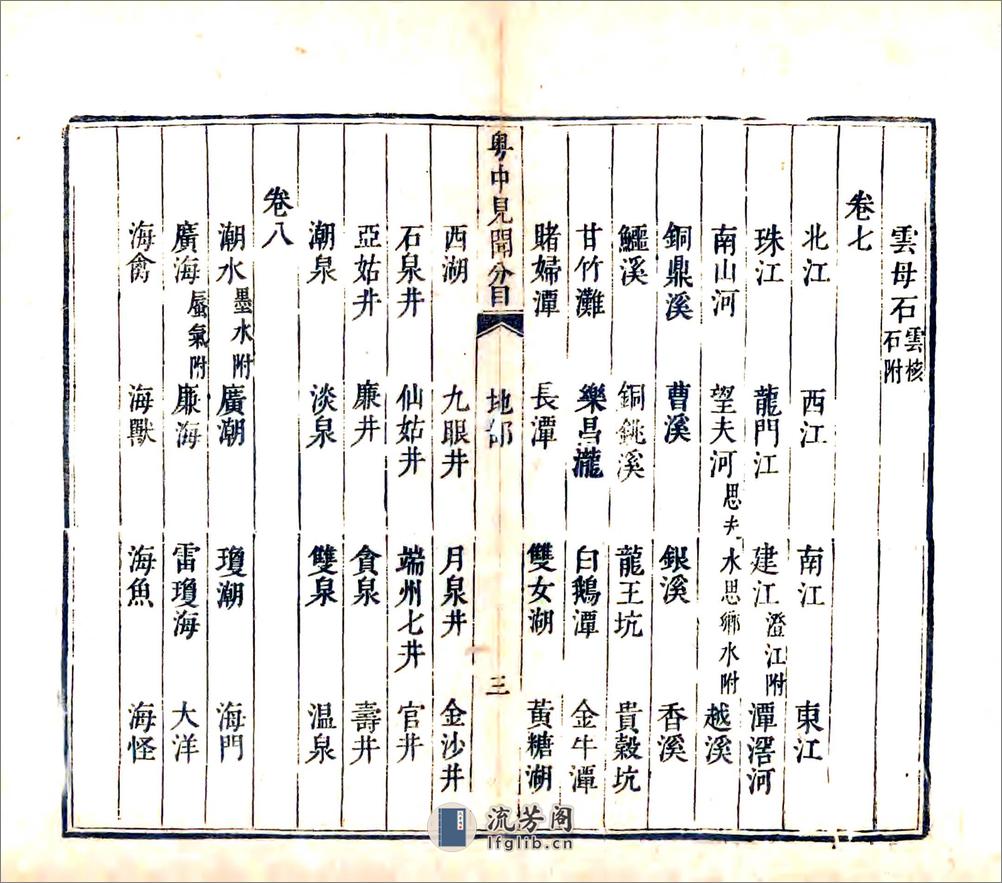 雲母石 雲核石附
卷七
北江 西江 南江 東江
珠江 龍門江 建江 澄江附 潭滘河
南山河 望夫河 思夫水思鄉水附 越溪
銅鼎溪 曹溪 銀溪 香溪
鱷溪 銅銚溪 龍王坑 貴穀坑
甘竹灘 樂昌瀧 白鵝潭 金牛潭
賭婦潭 長潭 雙女湖 黃糖湖
粵中見聞分目 地部 三
西湖 九眼井 月泉井 金沙井
石泉井 仙姑井 端州七井 官井
亞姑井 廉井 貪泉 壽井
潮泉 淡泉 雙泉 溫泉
卷八
潮水 墨水附 廣潮 瓊潮 海門
廣海 蜃氣附 廉海 雷瓊海 大洋
海禽 海獸 海魚 海怪
流芳阁
lfglib.cn